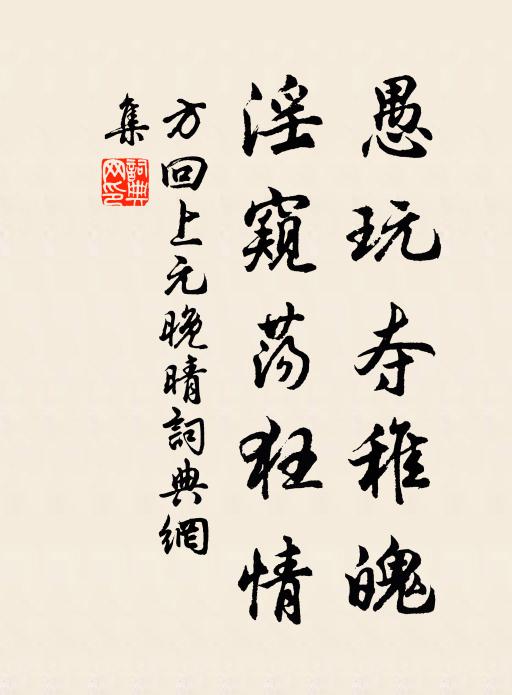 愚玩夺稚魄
淫窥荡狂情
方回上元晚晴詞典網
集
詞典網印